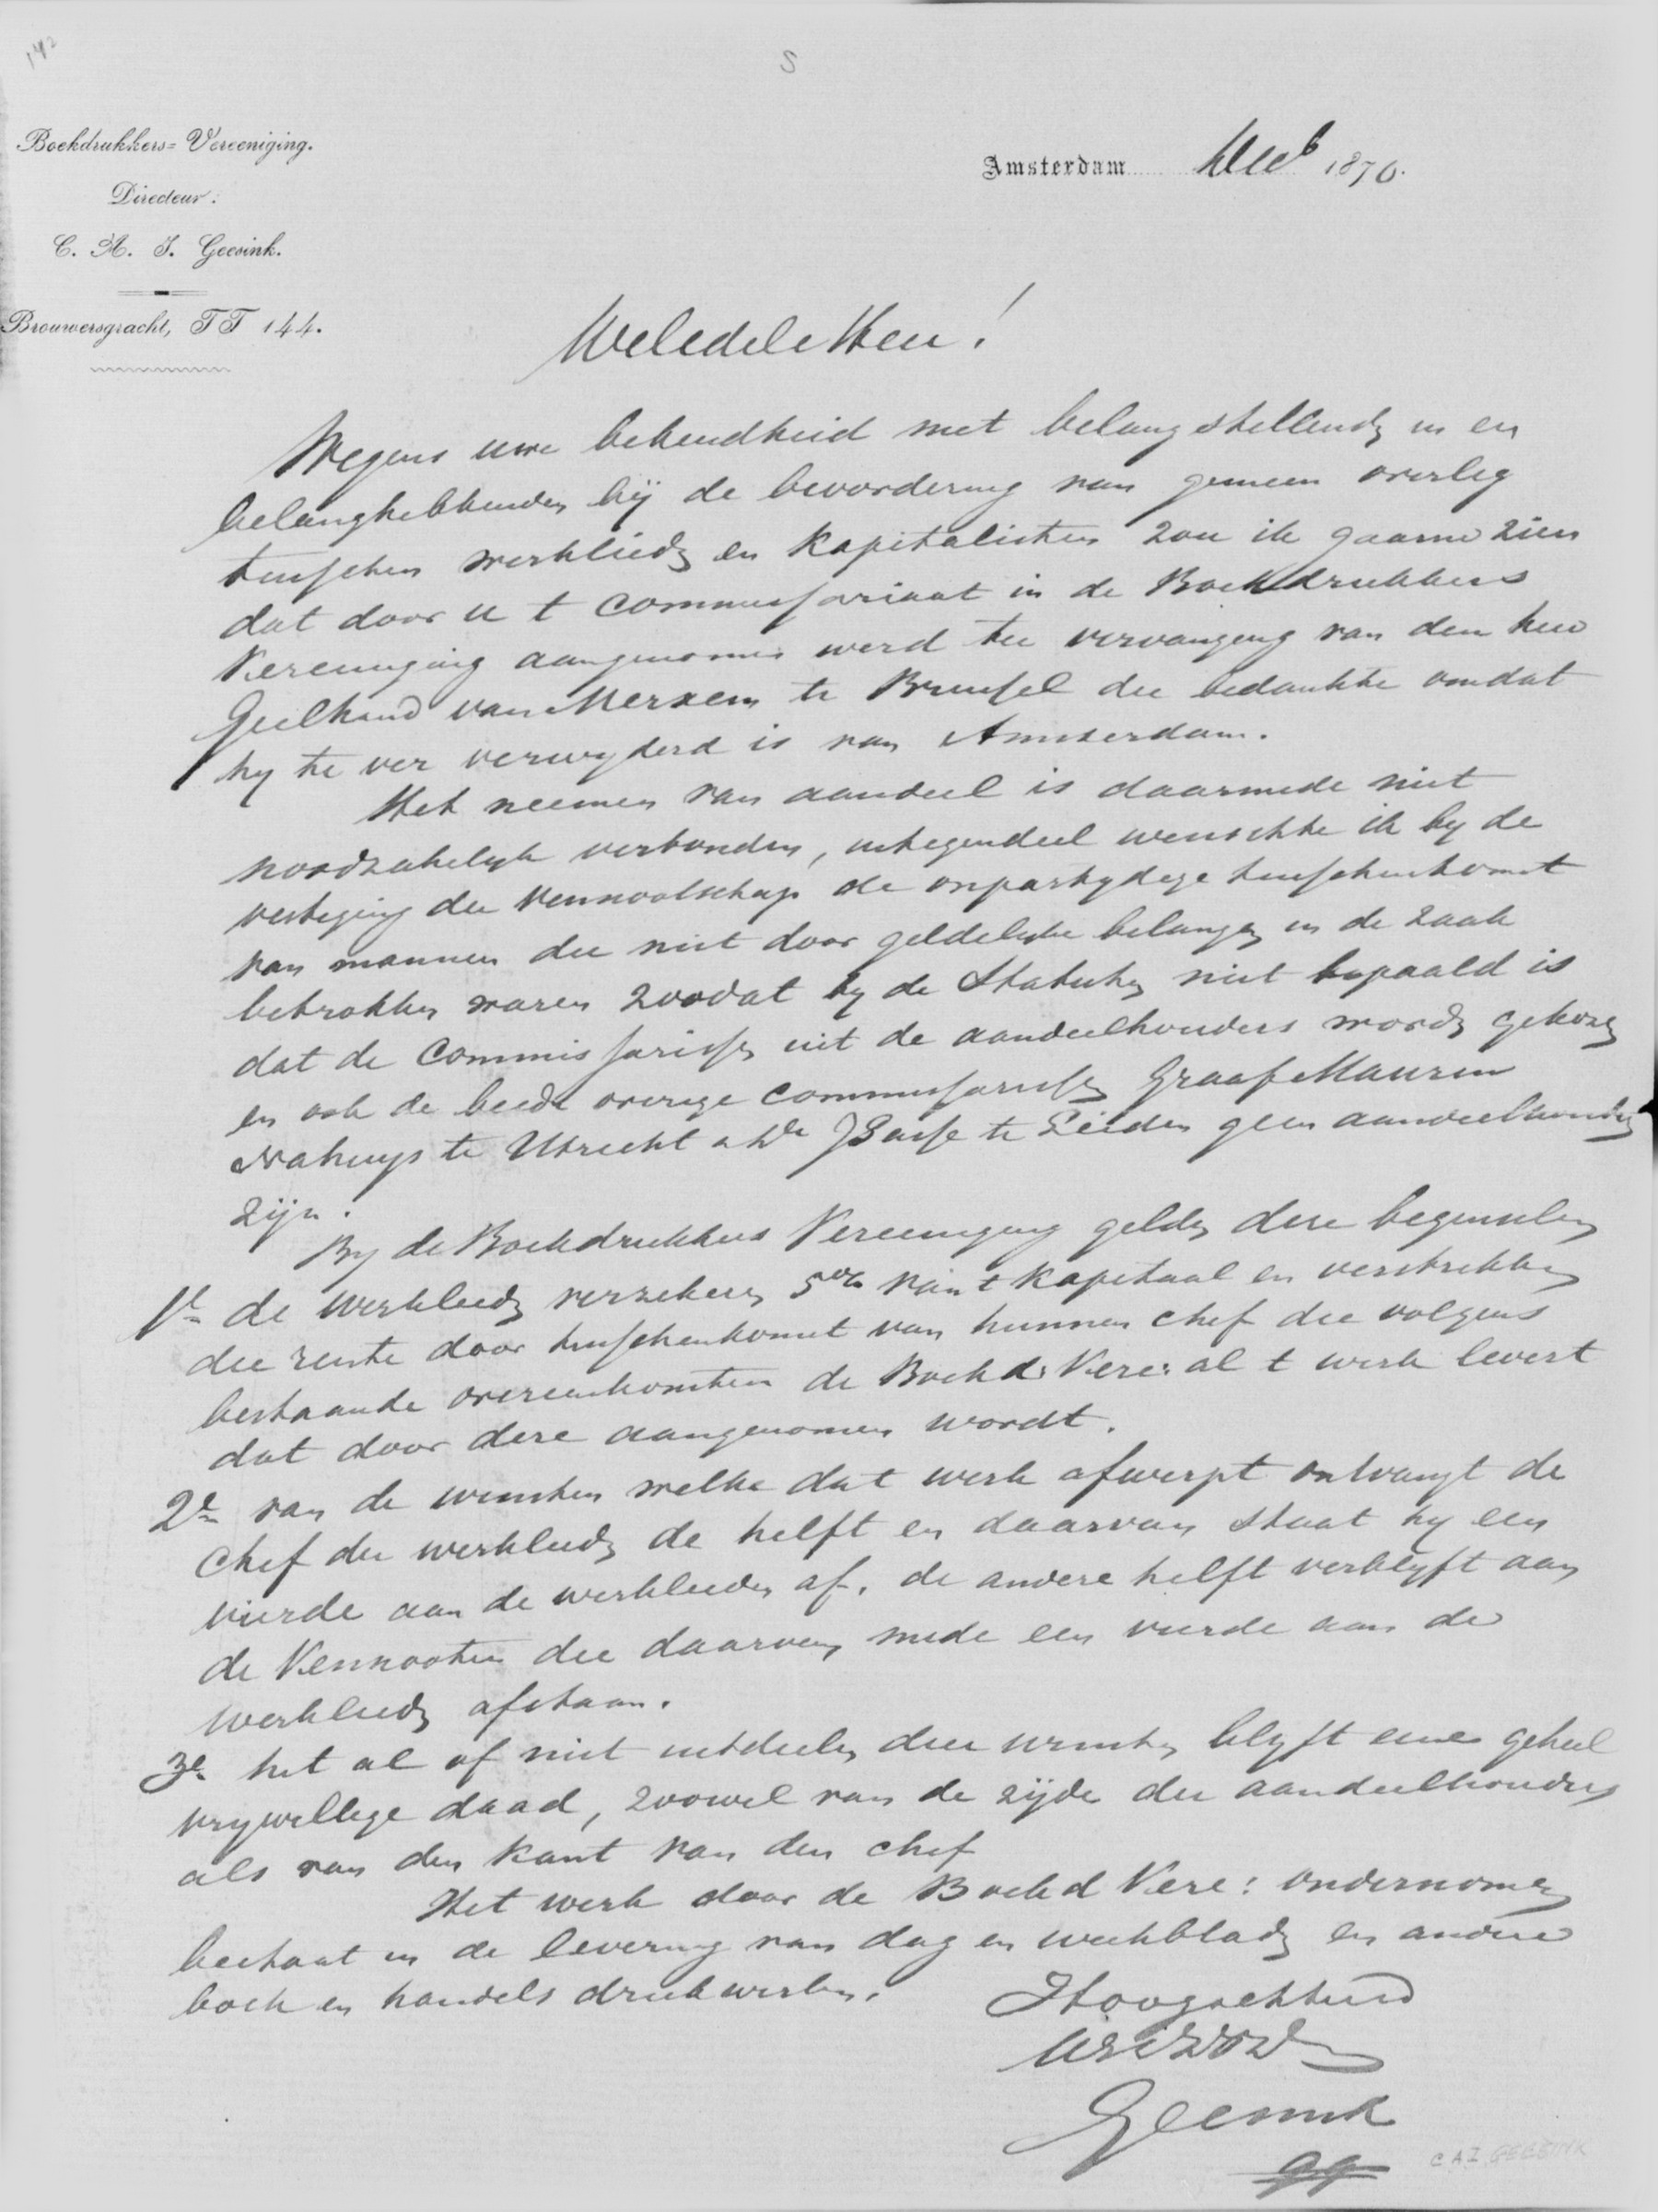 142
S
Boekdrukkers=Vereeniging.
Directeur:
C. A. J. Geesink.
Brouwersgracht, TT 144.
Amsterdam 1870.
Weledele Heer!
Wegens uwe bekendheid met belangstellenden in en
belanghebbenden bij de bevordering van gemeen overleg
tusschen werklieden en kapitalisten zou ik gaarne zien
dat door u t commissariaat in de Boekdrukkers
Vereeniging aangenomen werd ter vervanging van den heer
Geelhand van Merxem te Brussel die bedankte omdat
hy te ver verwyderd is van Amsterdam.
Het neemen van aandeel is daarmede niet
noodzakelyk verbonden, integendeel wenschte ik by de
vestiging der Vennootschap de onpartydige tusschenkomst
van mannen die niet door geldelyke belangen in de zaak
betrokken waren zoodat by de Statuten niet bepaald is
dat de Commissarissen uit de aandeelhouders worden gekozen
en ook de beide overige commissarissen Graaf Maurin
Nahuys te Utrecht te Leiden geen aandeelhouders
zijn.
By de Boekdrukkers Vereeniging gelden deze beginselen
1e de werklieden verzekeren 5% van t kapitaal en verstrekken
die rente door tusschenkomst van hunnen chef die volgens
bestaande overeenkomsten de Boekd: Vere: al t werk levert
dat door deze aangenomen wordt.
2e van de winsten welke dat werk afwerpt ontvangt de
chef der werklieden de helft en daarvan staat hy een
vierde aan de werklieden af. de andere helft verblyft aan
de Vennooten die daarvan mede een vierde aan de
werklieden afstaan.
3e het al of niet uitdeelen dier winsten blyft eene geheel
vrywillige daad, zoowel van de zijde der aandeelhouders
als van den kant van den chef
Het werk door de Boekd Vere: ondernomen
bestaat in de levering van dag en weekbladen en andere
boek en handels drukwerken.
Hoogachtend
Geesink
C A J GEESINK